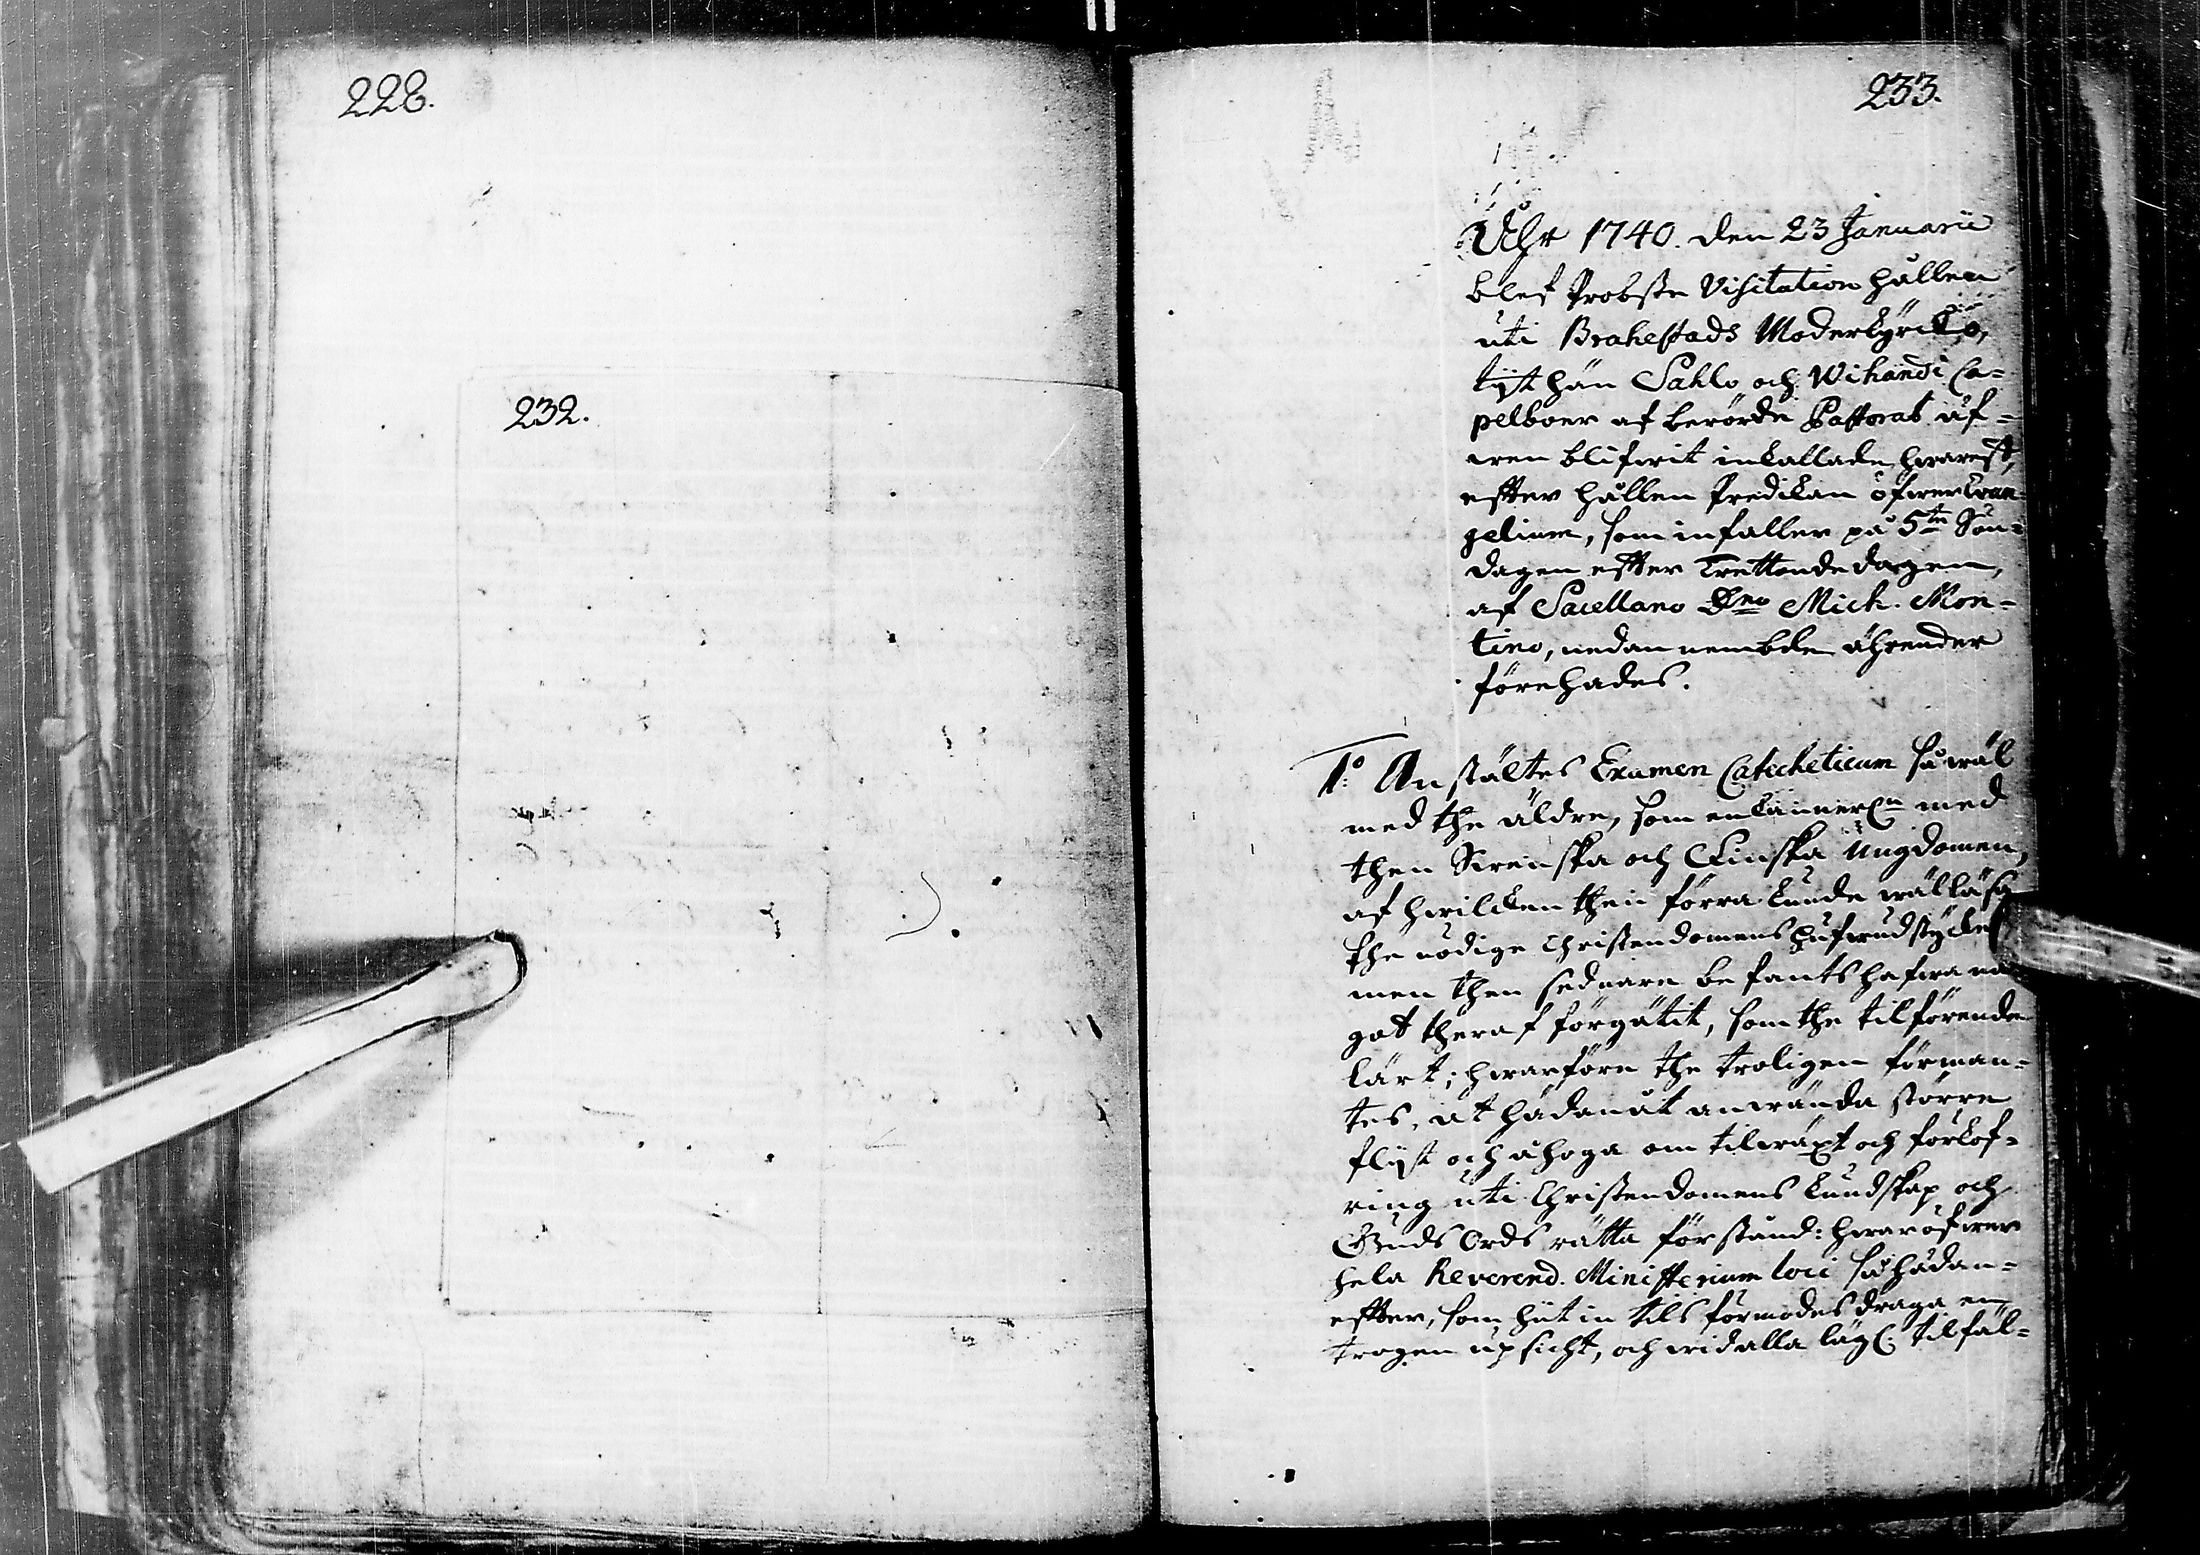 228.
232.
233.
Åhr 1740. den 23 Januarii
blef Probste Visitation hållen
uti Brahestads Moderkyrckio,
tijt hän Sahlo och Wihandi Ca-
pelboer af berörde Pastorat äf-
wen blifwit inkallade, hwarest,
effter hållen Predikan öfwer Evan
gelium, som infaller på 5te Sön-
dagen effter Trettondedagen,
af Sacellano Dno Mich. Mon-
tino, nedannembde ährender
förehades.
1o: Anstältes Examen Catecheticum så wäl
med the äldre, som enkannerln med
then Swenska och Finska Ungdomen,
af hwilcken then förra kunde wäl läsa
the nödige Christendomens hufwudstycke
men then sednare befants hafwa nå
got theraf förgätit, som the tilförende
lärt; hwarföre the troligen förman-
tes, at hädanåt anwända större
flijt och åhoga om tilwäxt och förkof-
ring uti Christendomens kundskap och
Guds Ords rätta förstånd: hwaröfwer
hela Reverend. Ministerium loci så hädan-
effter, som hit in tils förmodes draga en
trogen upsicht, och wid alla lägl: tilfäl-